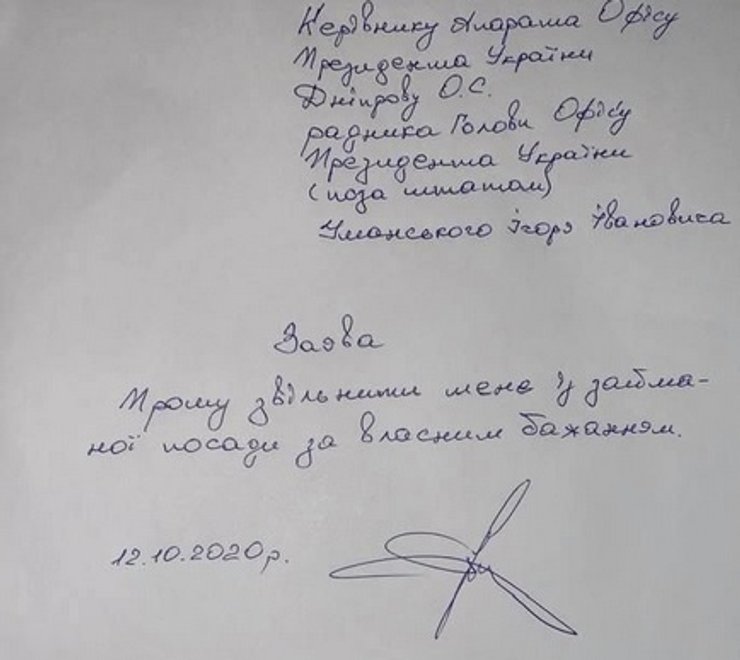 Керівнику Апарата Офісу
Президента України
Дніпрову О.С.
радника Голови Офісу
Президента України
(поза штатом)
Уманського Ігоря Івановича
Заява
Прошу звільнити мене із займа-
ної посади за власним бажанням.
12.10.2020р.